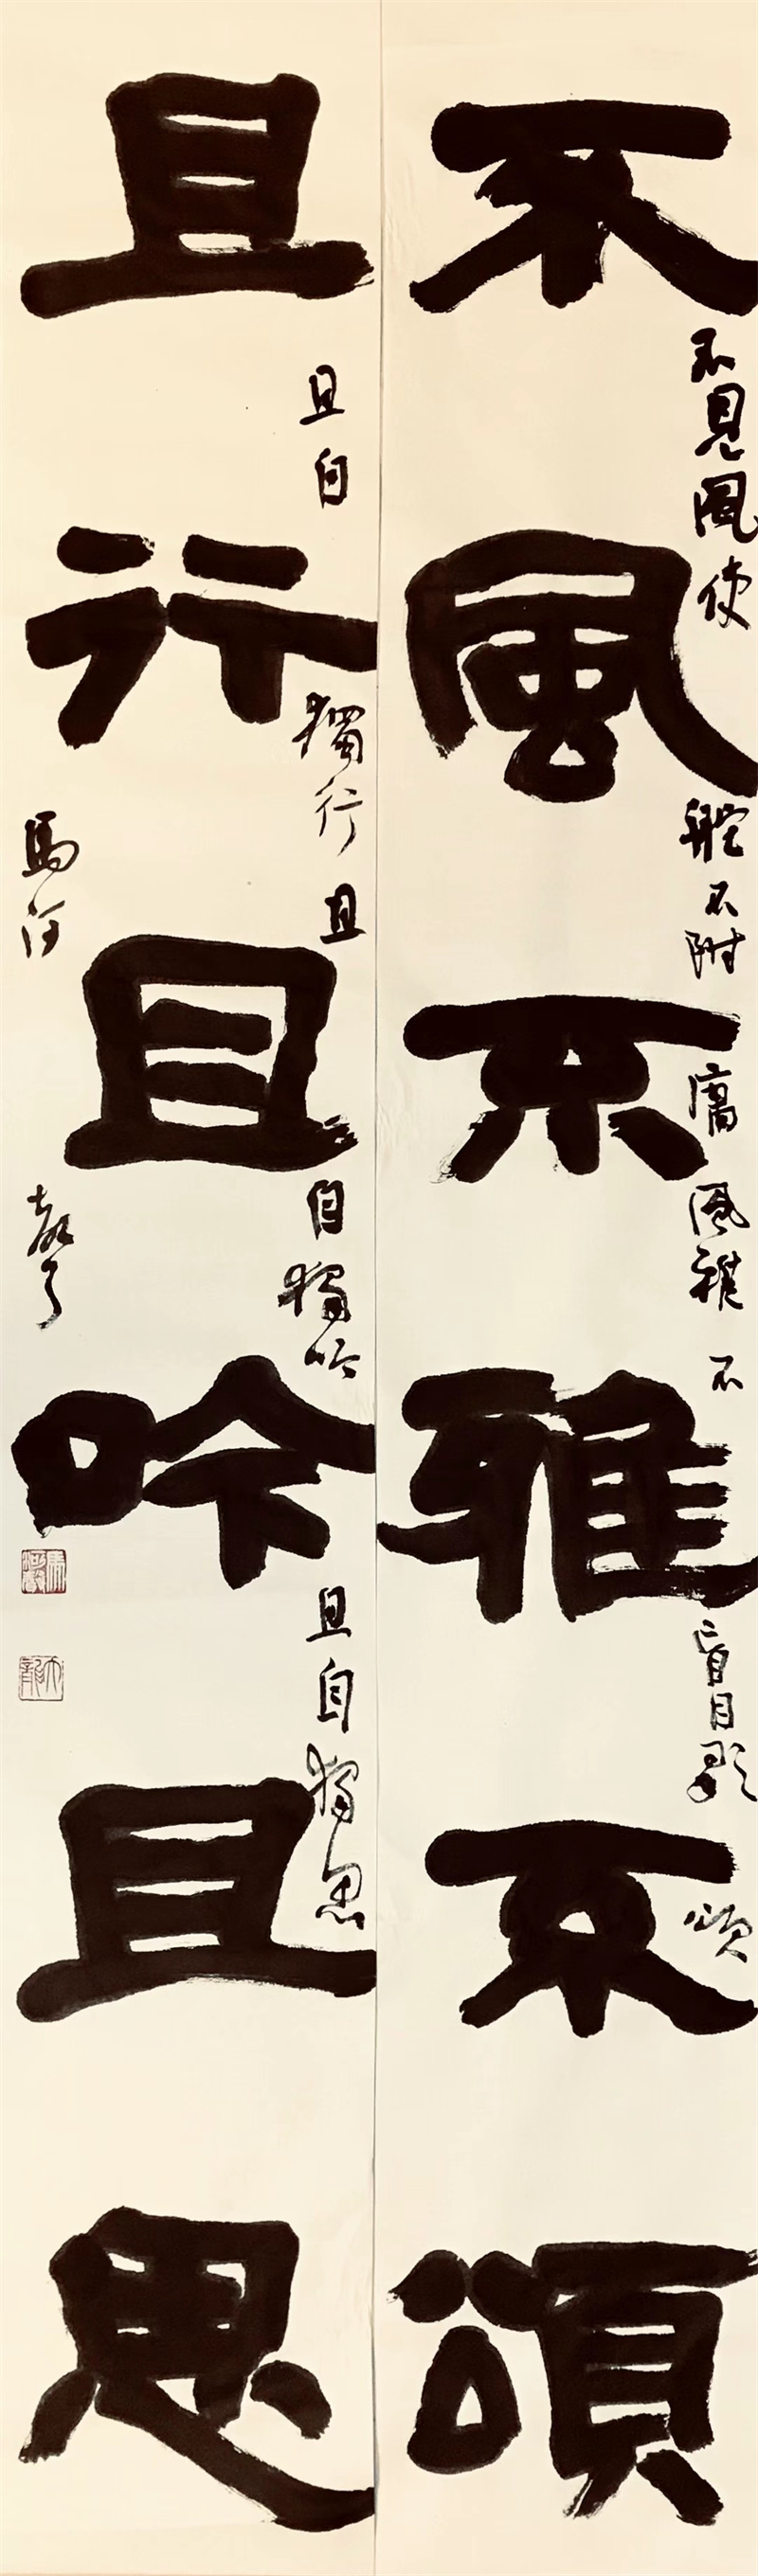 不風不雅不頌
不見風使舵不附庸風雅不盲目歌頌
且行且吟且思
且自獨行且自獨吟且自獨思
馬河聲
馬河聲